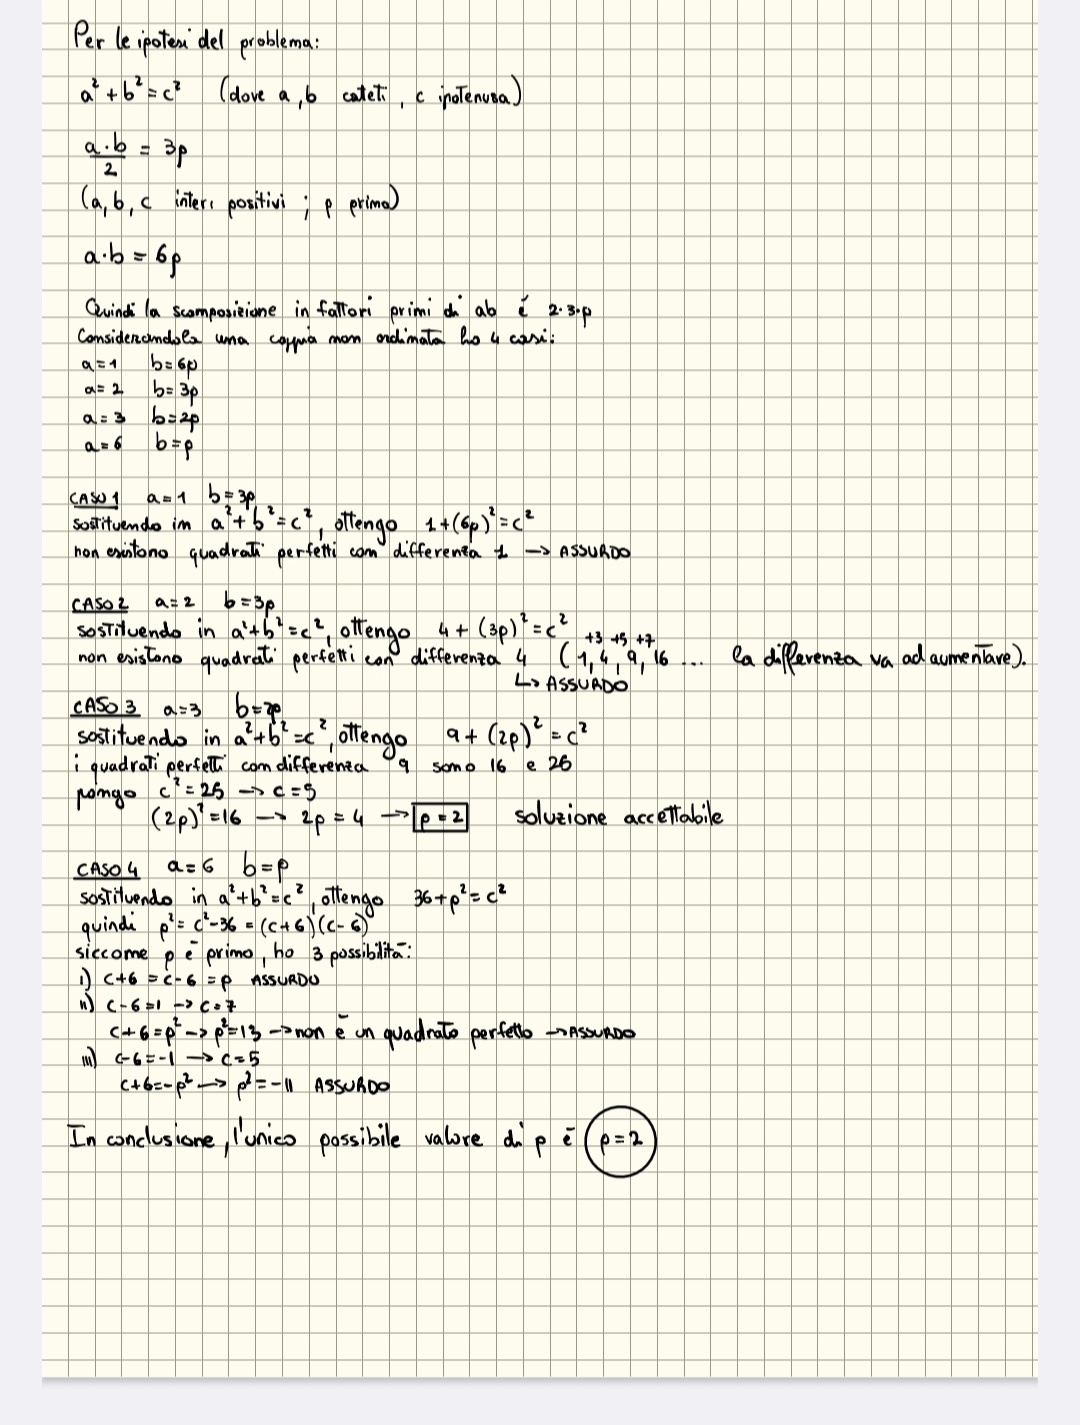 Per le ipotesi del problema:
a² + b² = c² (dove a, b cateti, c ipotenusa)
a·b/2 = 3p
(a, b, c interi positivi; p primo)
a·b = 6p
Quindi la scomposizione in fattori primi di ab è 2·3·p
Considerandola una coppia non ordinata ho 4 casi:
a=1 b=6p
a=2 b=3p
a=3 b=2p
a=6 b=p
CASO 1 a=1 b=3p
sostituendo in a²+b²=c², ottengo 1+(6p)²=c²
non esistono quadrati perfetti con differenza 1 → ASSURDO
CASO 2 a=2 b=3p
sostituendo in a²+b²=c², ottengo 4+(3p)²=c²
+3 +5 +7
non esistono quadrati perfetti con differenza 4 (1, 4, 9, 16 ... la differenza va ad aumentare).
↳ ASSURDO
CASO 3 a=3 b=2p
sostituendo in a²+b²=c², ottengo 9+(2p)²=c²
i quadrati perfetti con differenza 9 sono 16 e 25
pongo c²=25 → c=5
(2p)²=16 → 2p=4 → p=2 soluzione accettabile
CASO 4 a=6 b=p
sostituendo in a²+b²=c², ottengo 36+p²=c²
quindi p²=c²-36=(c+6)(c-6)
siccome p è primo, ho 3 possibilità:
i) c+6=c-6=p ASSURDO
ii) c-6=1 → c=7
c+6=p² → p²=13 → non è un quadrato perfetto → ASSURDO
iii) c-6=-1 → c=5
c+6=-p² → p²=-11 ASSURDO
In conclusione, l'unico possibile valore di p è p=2